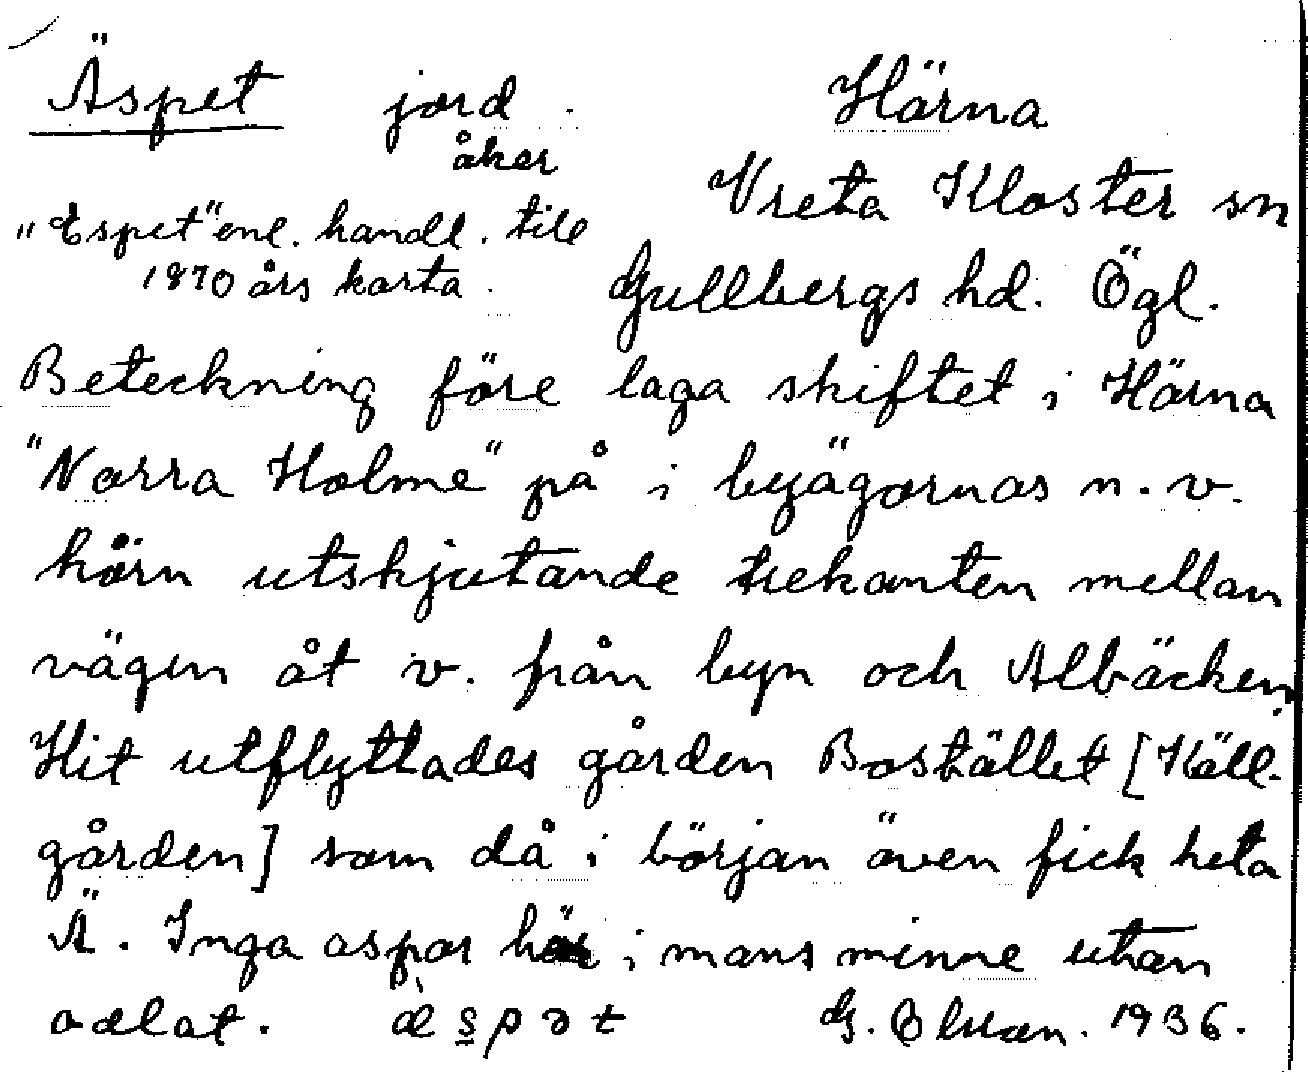 Äspet jord Härna
åker
Vreta Kloster sn
"Espet" enl. handl. till
1870 års karta.
Gullbergs hd. Ögl.
Beteckning före laga skiftet i Härna
"Norra Holme" på i byägornas n.v.
hörn utskjutande trekanten mellan
vägen åt v. från byn och Albäcken.
Hit utflyttades gården Bostället [Häll-
gården] som då i början även fick heta
Ä. Inga aspar här i mans minne utan
odlat. æ̀s̲pət G. 1936.